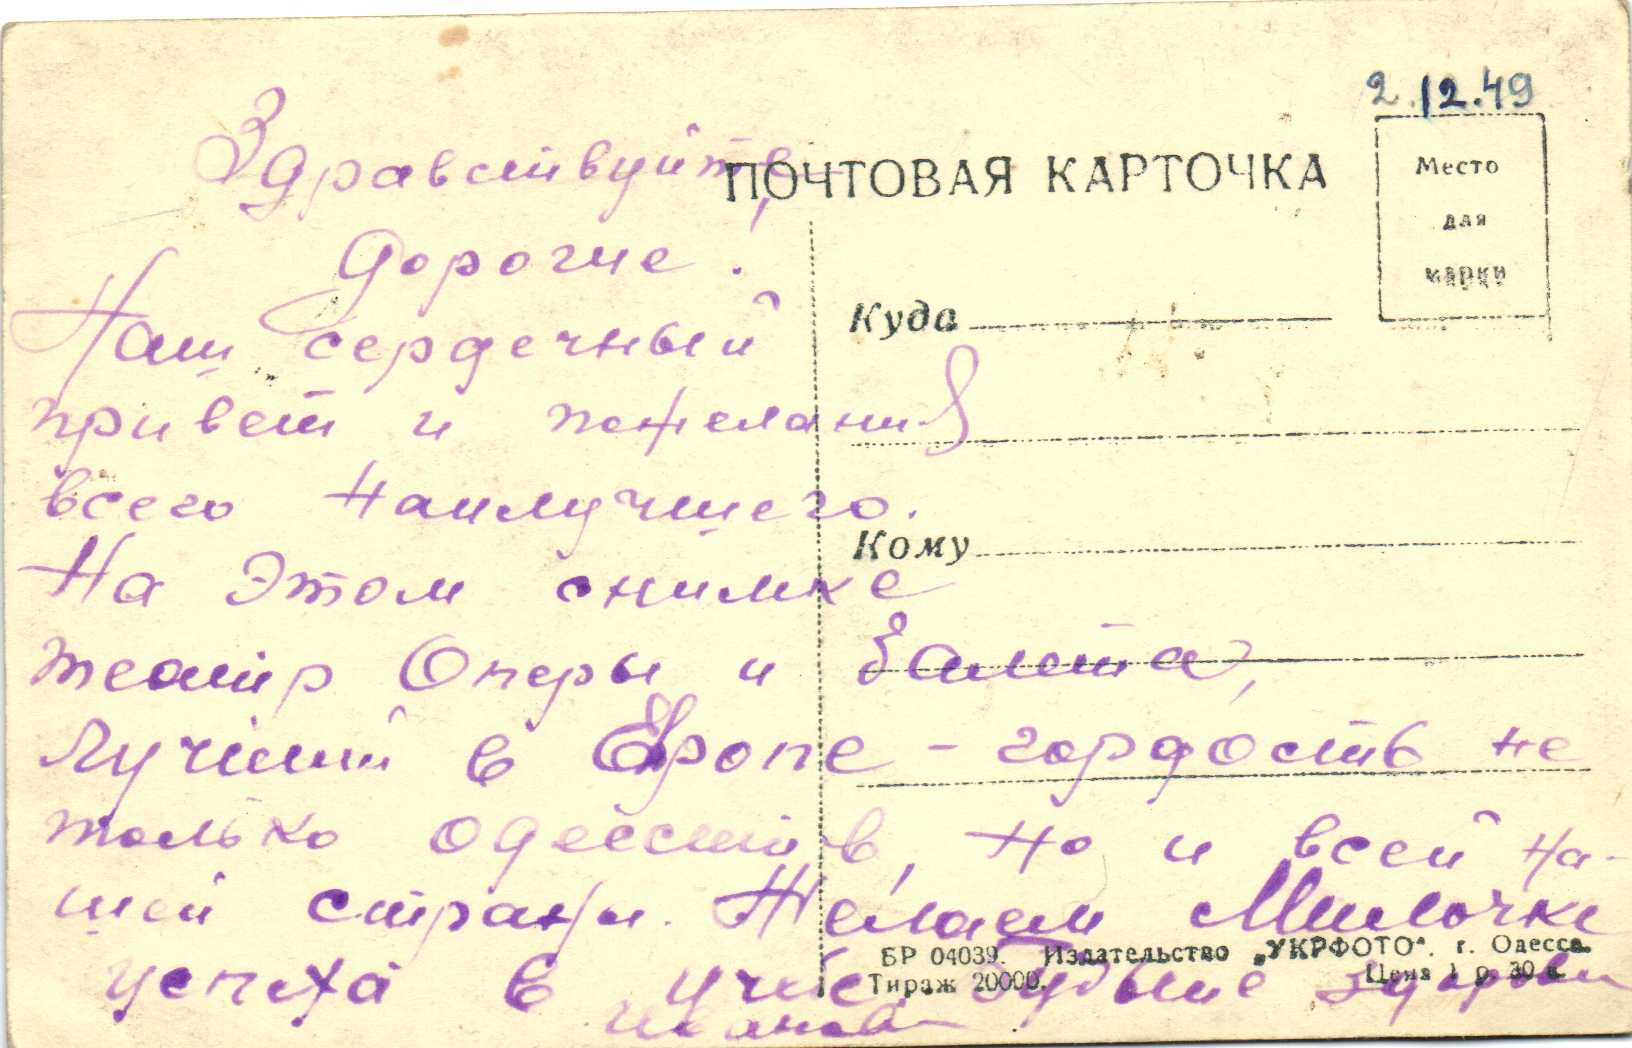 2.12.49
ПОЧТОВАЯ КАРТОЧКА
Место
для
марки
Куда
Кому
Здравствуйте,
дорогие!
Наш сердечный
привет и пожелания
всего наилучшего.
На этом снимке
театр Оперы и Балета,
Лучший в Европе – гордость не
только одесситов, но и всей на-
шей страны. Желаем Милочке
успеха в учебе.
БР 04039. Издательство „УКРФОТО“. г. Одесса.
Тираж 20000. Цена 1 р. 30 к.